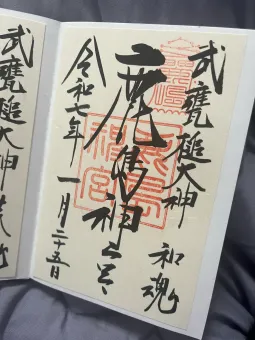 武甕槌大神 和魂
鹿島神宮
令和七年一月二十五日
武甕槌大神荒